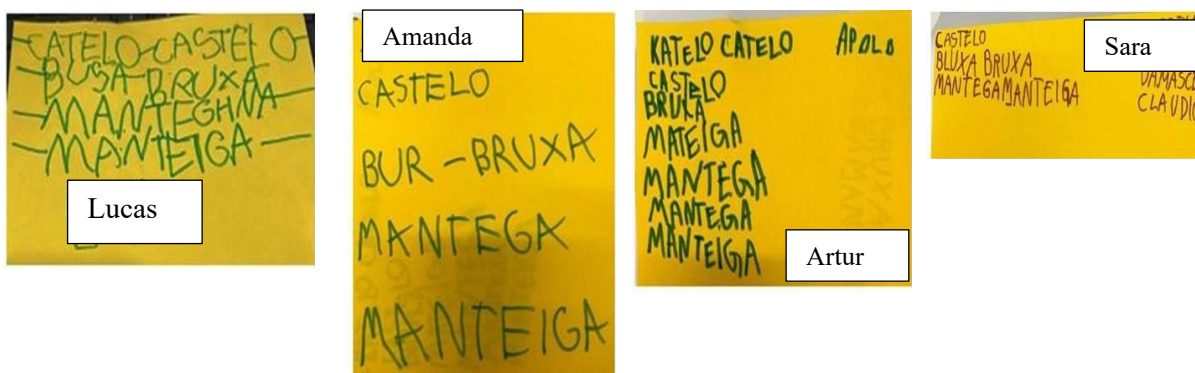 CATELO-CASTELO
BUSA-BRUXA
MANTEGHNA
MANTEIGA
Lucas
Amanda
CASTELO
BUR-BRUXA
MANTEGA
MANTEIGA
KATELO CATELO APOLO
CASTELO
BRUXA
MATEIGA
MANTEGA
MANTEGA
MANTEIGA
Artur
Sara
CASTELO
BLUXA BRUXA
MANTEGAMANTEIGA